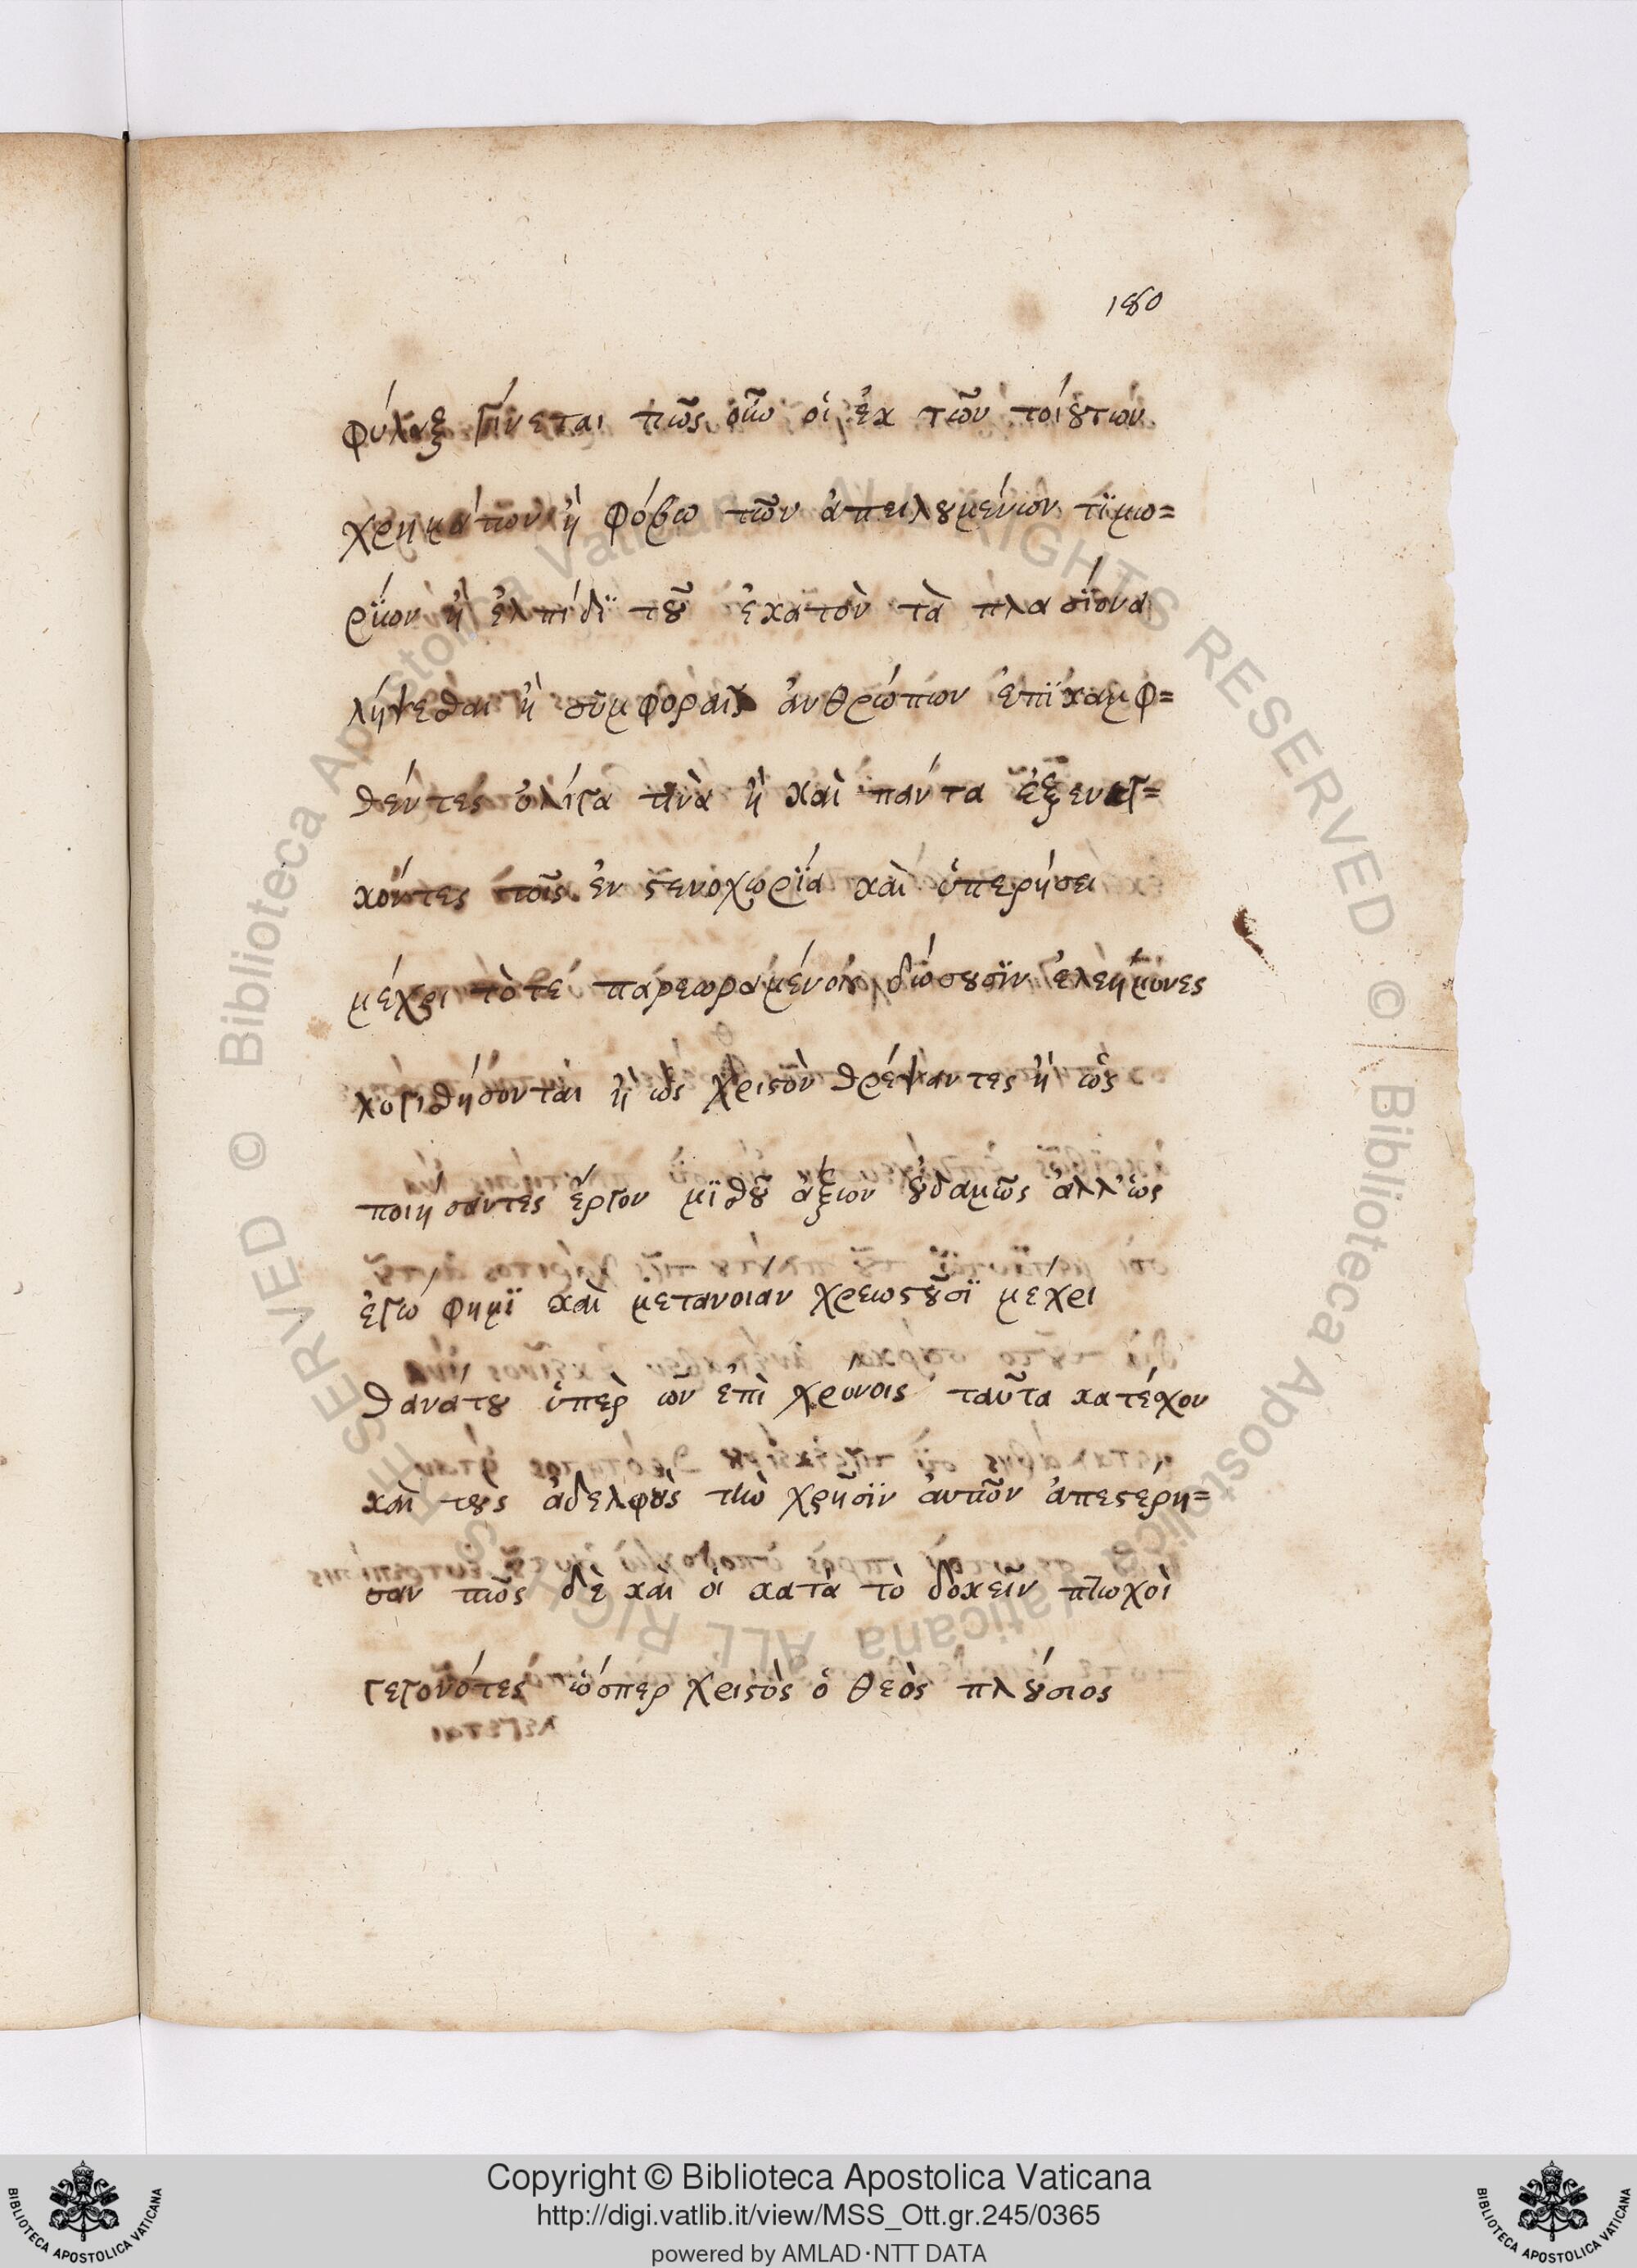 180
φύλαξ γίνεται πῶς οὖν οἱ ἐκ τῶν τοιούτων
χρημάτων ἢ φόβω τῶν ἀπειλουμένων τϊμω=
ρϊων ἢ ἐλπίδϊ τοῦ ἑκατὸν τὰ πλασϊονα
λήψεσθαι ἢ συμφοραῖς ἀνθρώπων ἐπϊκαμφ=
θέντες ὀλίγα τινὰ ἢ καὶ πάντα ἐξενεγ=
κόντες τοῖς ἐν στενοχωρϊα καὶ ὑπερήσει
μέχρι τότε παρεωραμένοις δώσουσϊν ἐλεήμονες
λογισθήσονται ἢ ὡς χριστὸν θρέψαντες ἢ ὡς
ποιήσαντες ἔργον μϊσθοῦ ἄξιον οὐδαμῶς ἀλλ' ὡς
ἐγώ φημϊ καὶ μετανοιαν χρεωστοῦσϊ μέχρι
θανάτου ὑπὲρ ὧν ἐπὶ χρόνοις ταῦτα κατέχον
καὶ τοὺς ἀδελφοὺς τὴν χρῆσϊν αὐτῶν ἀπεστερη=
σαν πῶς δὲ καὶ οἱ κατὰ τὸ δοκεῖν πτωχοὶ
γεγονότες ὥσπερ χριστὸς ὁ θεὸς πλούσιος
Copyright © Biblioteca Apostolica Vaticana
http://digi.vatlib.it/view/MSS_Ott.gr.245/0365
powered by AMLAD·NTT DATA
BIBLIOTECA APOSTOLICA VATICANA
BIBLIOTECA APOSTOLICA VATICANA